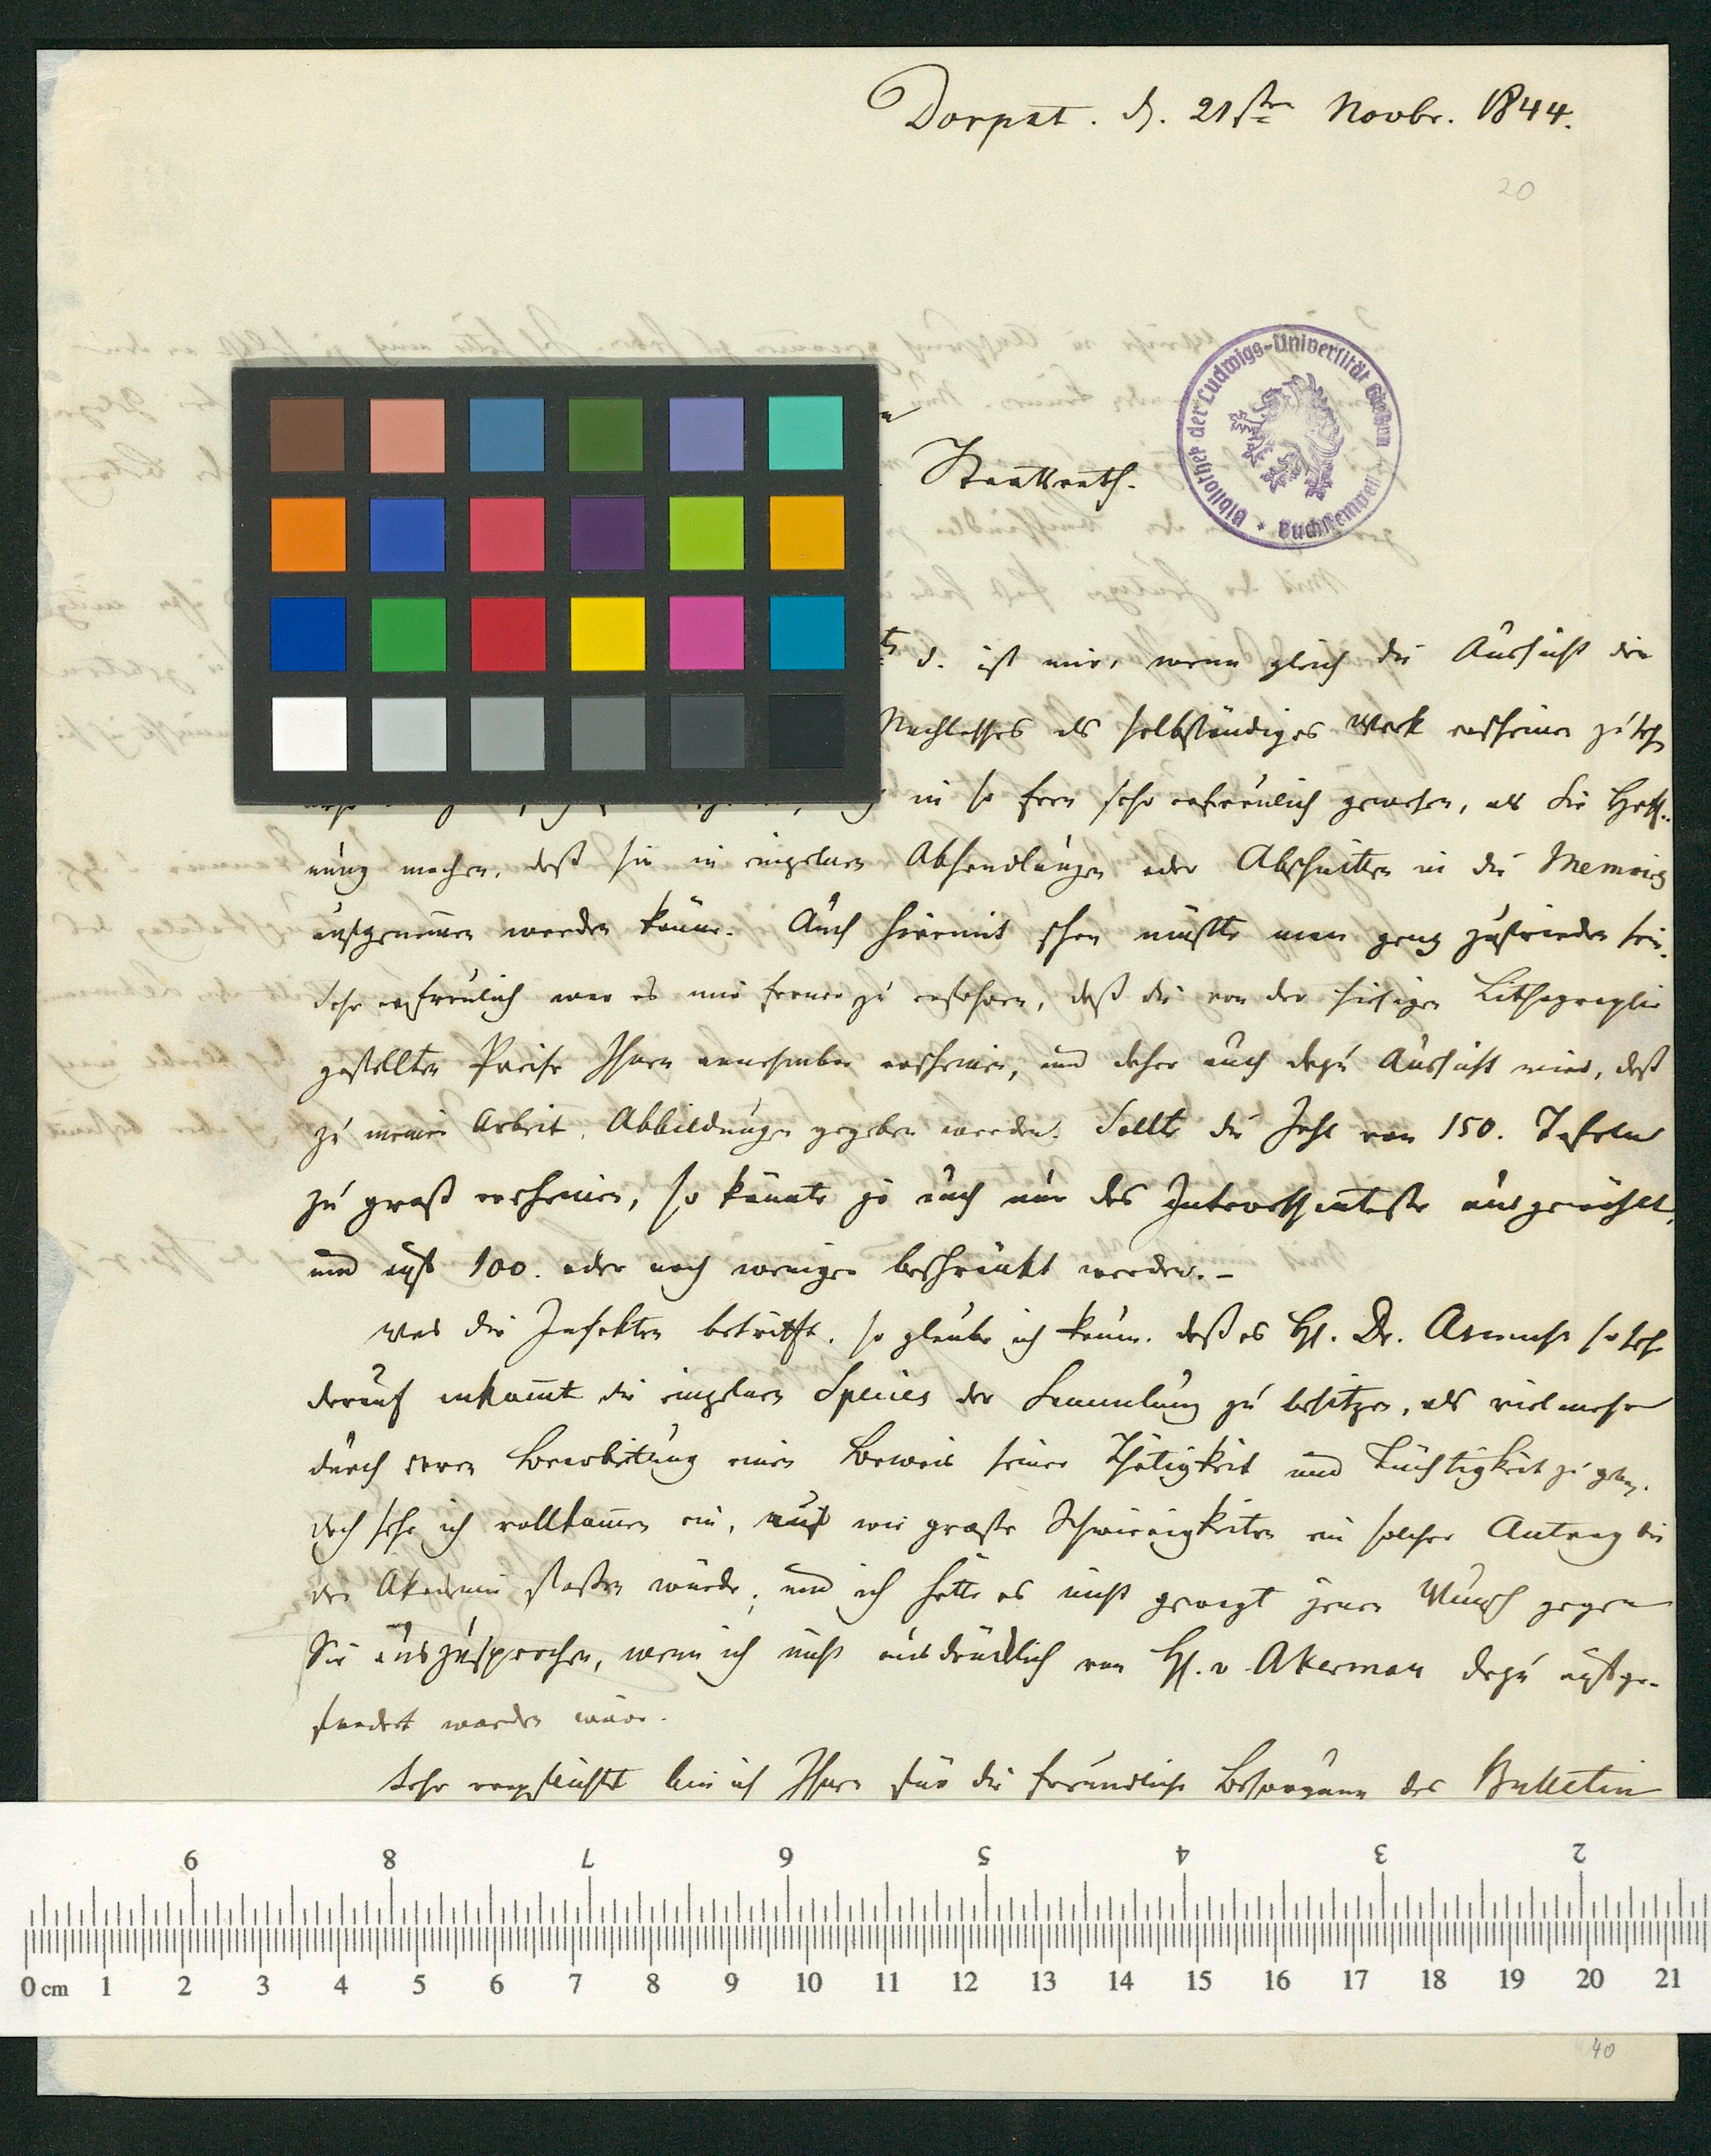 Dorpat. d. 21sten Novbr. 1844.
20
Bibliothek der Ludwigs-Universität Gießen
Buchstempel
Staatsrath.
d. ist mir, wenn gleich die Aussicht den
Nachlasses als selbständiges Werk erscheinen zu sehn
in so fern sehr erfreulich gewesen, als Sie Hoff-
nung machen, daß sie in einzelnen Abhandlungen oder Abschnitten in die Memoiren
aufgenommen werden könne. Auch hiermit schon müßte man ganz zufrieden sein.
Sehr erfreulich war es mir ferner zu erfahren, daß die von der hiesigen Lithographie
gestellten Preise Ihnen annehmbar erscheinen, und daher auch dazu Aussicht wird, daß
zu meiner Arbeit Abbildungen gegeben werden. Sollte die Zahl von 150. Tafeln
zu groß erscheinen, so könnte ja auch nur das Interessanteste ausgewählt,
und auf 100. oder noch weniger beschränkt werden. –
Was die Insekten betrifft, so glaube ich kaum, daß es H. Dr. Asmuß so sehr
darauf ankommt die einzelnen Species der Sammlung zu besitzen, als vielmehr
durch deren Bearbeitung einen Beweis seiner Thätigkeit und Tüchtigkeit zu geben.
Doch sehe ich vollkommen ein, auf wie große Schwierigkeiten ein solcher Antrag bei
der Akademie stoßen würde, und ich hätte es nicht gewagt jenen Wunsch gegen
Sie auszusprechen, wenn ich nicht ausdrücklich von H. v. Akerman dazu aufge-
fordert worden wäre.
Sehr verpflichtet bin ich Ihnen für die freundliche Besorgung des Bulletin
9 8 7 6 5 4 3 2
0 cm 1 2 3 4 5 6 7 8 9 10 11 12 13 14 15 16 17 18 19 20 21
40